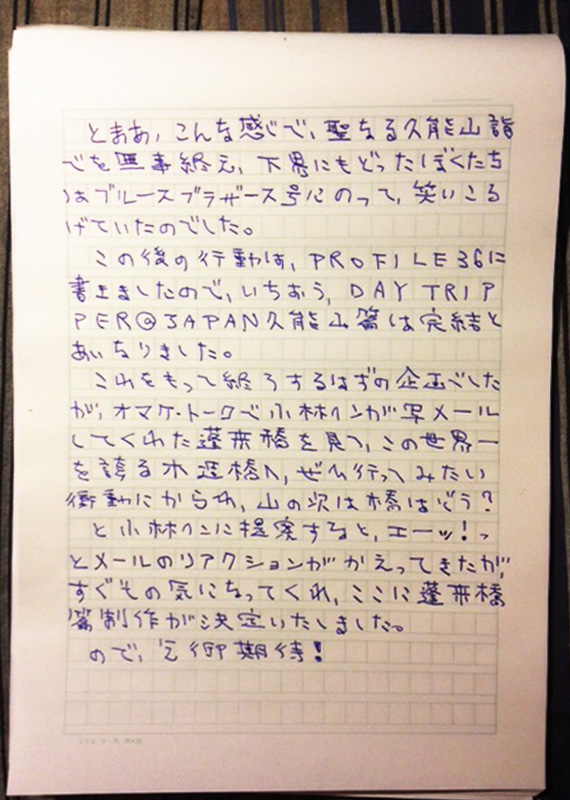 とまあ、こんな感じで、聖なる久能山詣
でを無事終え、下界にもどったぼくたち
はブルースブラザース号にのって、笑いころ
げていたのでした。
この後の行動は、PROFILE36に
書きましたので、いちおう、DAY TRIP
PER@JAPAN久能山篇は完結と
あいなりました。
これをもって終了するはずの企画でした
が、オマケ・トークで小林クンが写メール
してくれた蓬莱橋を見て、この世界一
を誇る木造橋へ、ぜひ行ってみたい
衝動にかられ、山の次は橋はどう?
と小林クンに提案すると、エーッ!っ
とメールのリアクションがかえってきたが、
すぐその気になってくれ、ここに蓬莱橋
篇制作が決定いたしました。
ので、乞御期待!